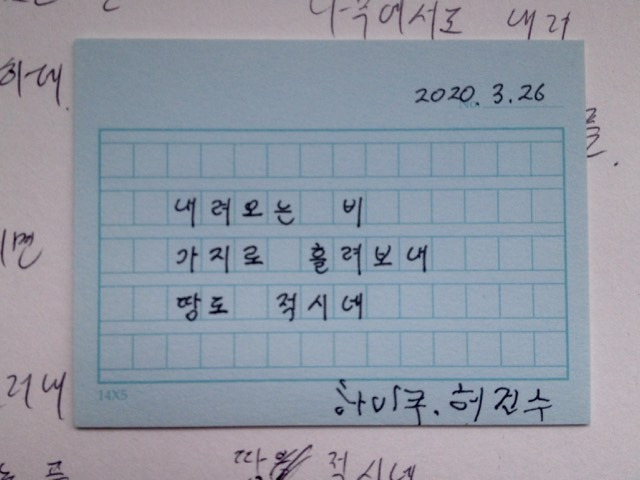 나무에서로 내려
하네
2020. 3. 26
내려오는 비
가지로 흘려보내
땅도 적시네
14X5
하이쿠. 허진수
땅 적시네